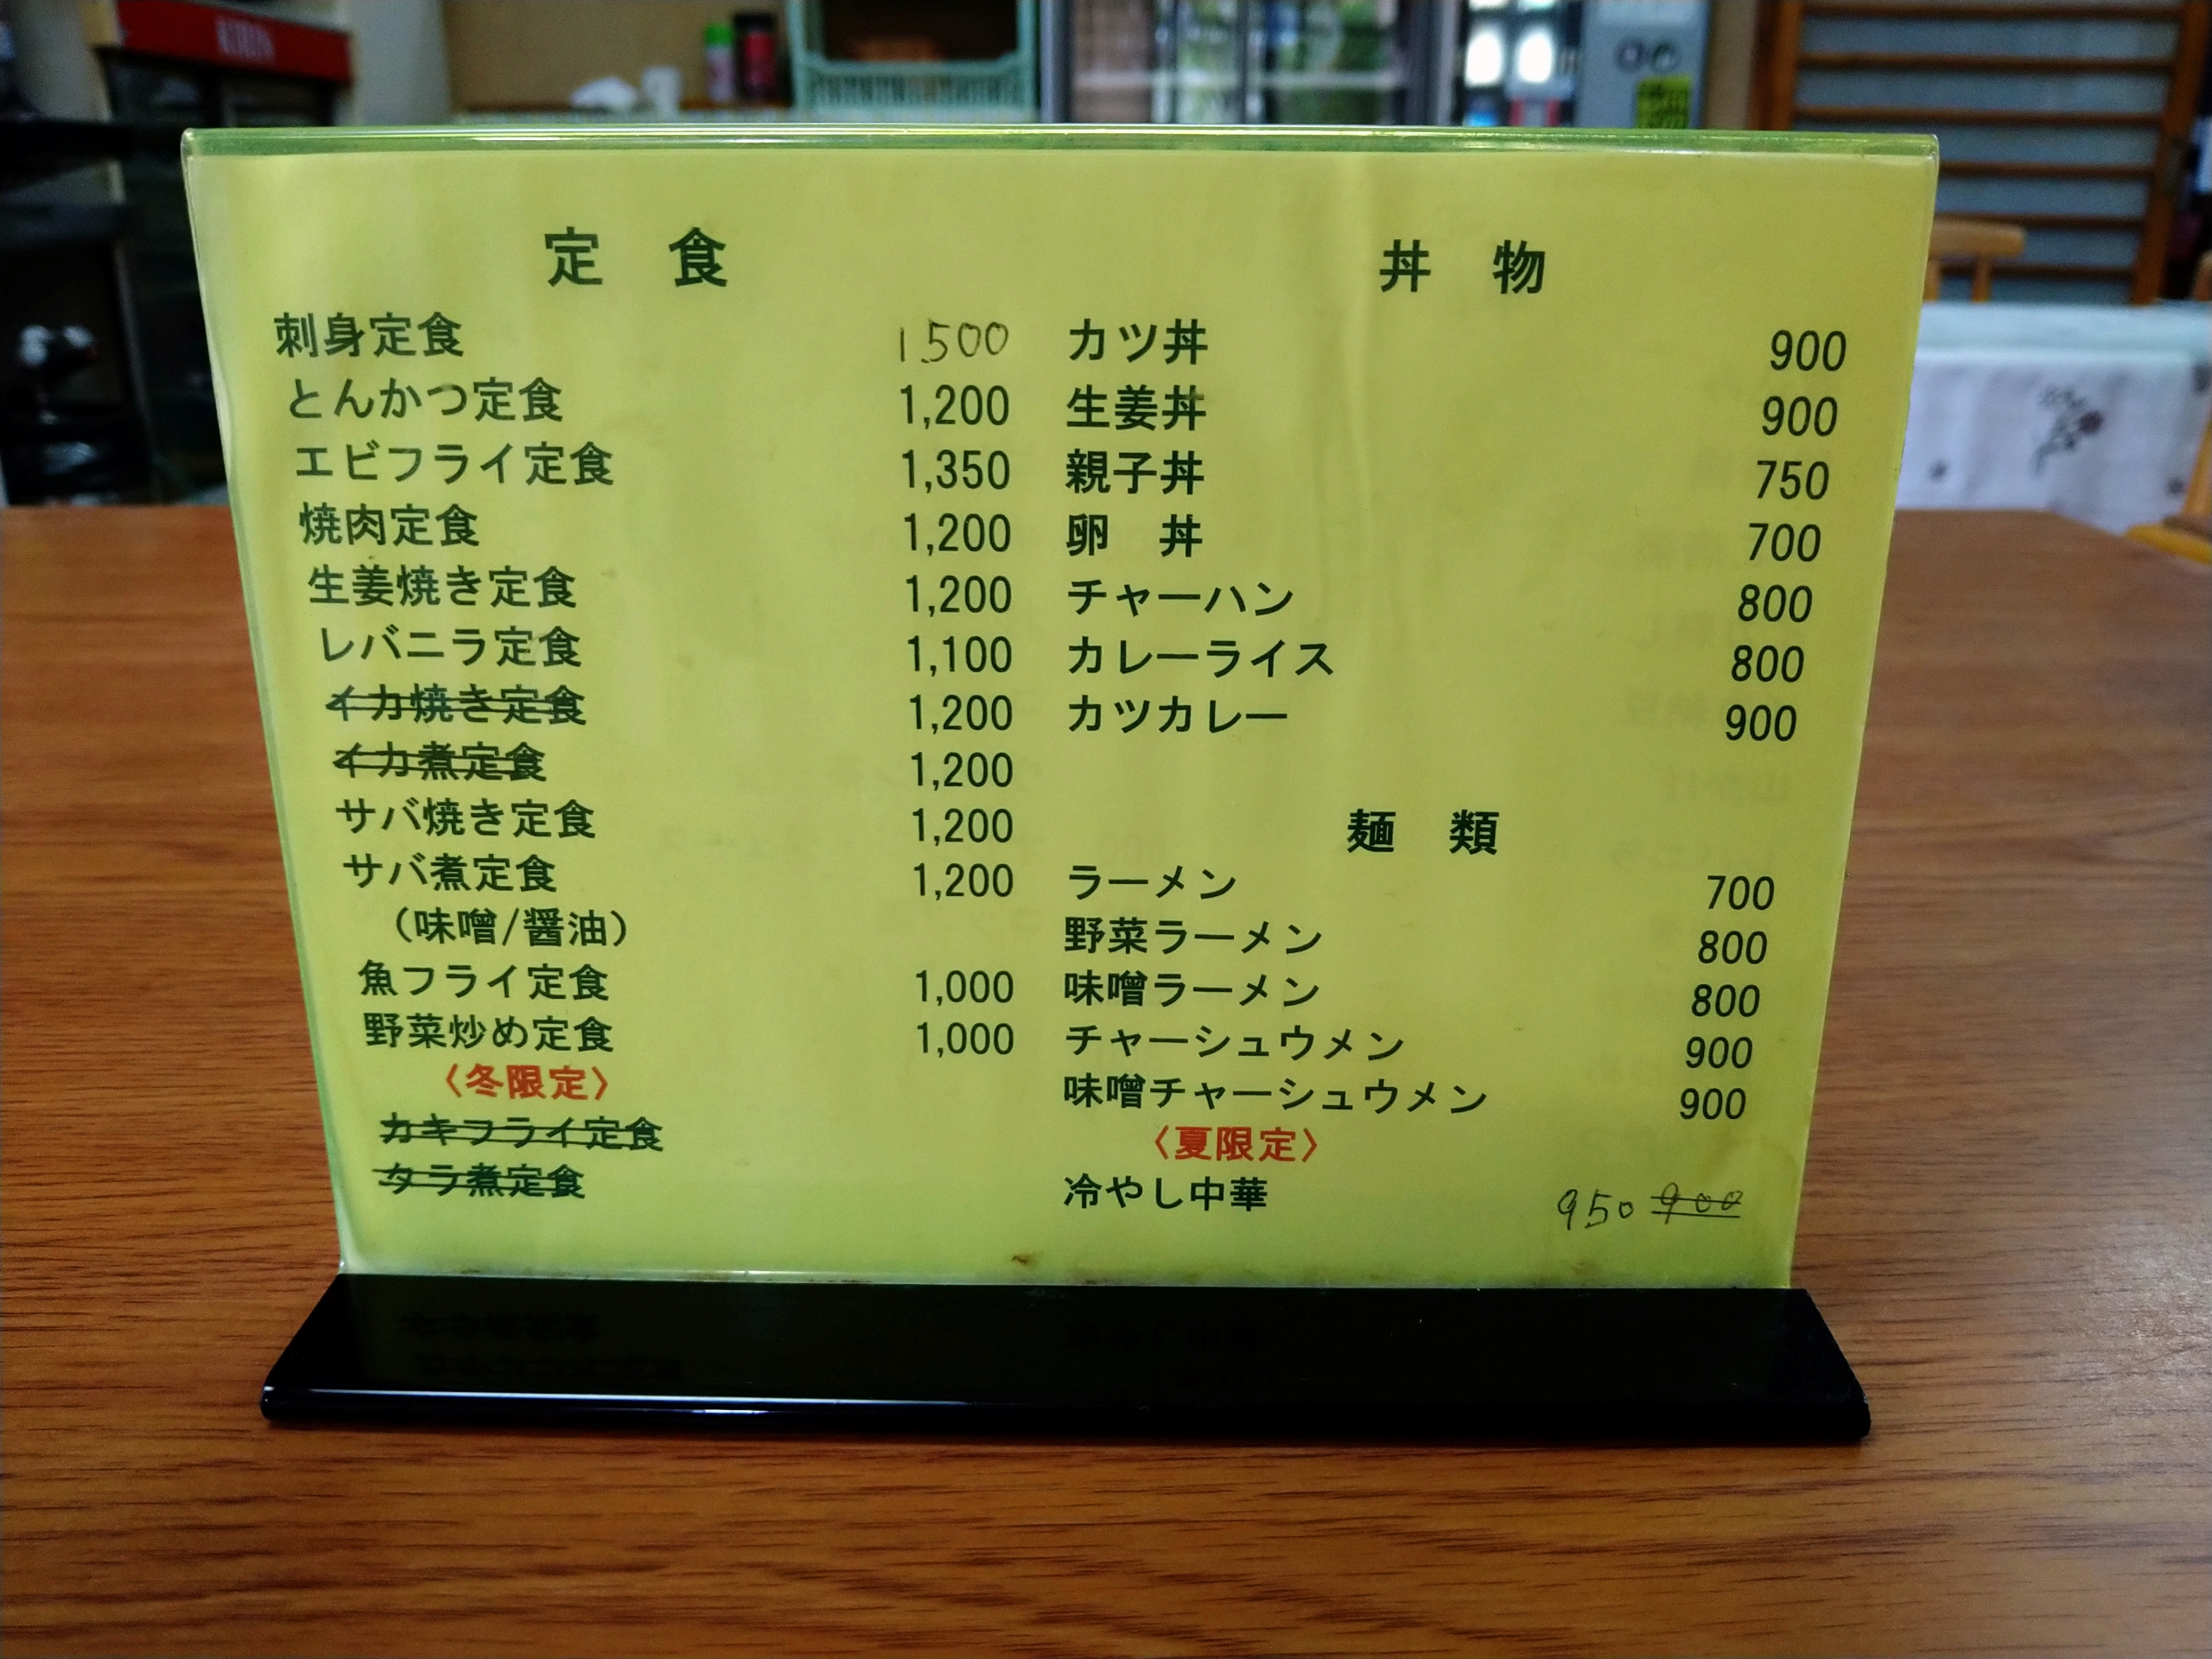 KIRIN
定 食
刺身定食 1,500
とんかつ定食 1,200
エビフライ定食 1,350
焼肉定食 1,200
生姜焼き定食 1,200
レバニラ定食 1,100
イカ焼き定食 1,200
イカ煮定食 1,200
サバ焼き定食 1,200
サバ煮定食 1,200
（味噌/醤油）
魚フライ定食 1,000
野菜炒め定食 1,000
〈冬限定〉
カキフライ定食
タラ煮定食
丼 物
カツ丼 900
生姜丼 900
親子丼 750
卵 丼 700
チャーハン 800
カレーライス 800
カツカレー 900
麺 類
ラーメン 700
野菜ラーメン 800
味噌ラーメン 800
チャーシュウメン 900
味噌チャーシュウメン 900
〈夏限定〉
冷やし中華 950 900